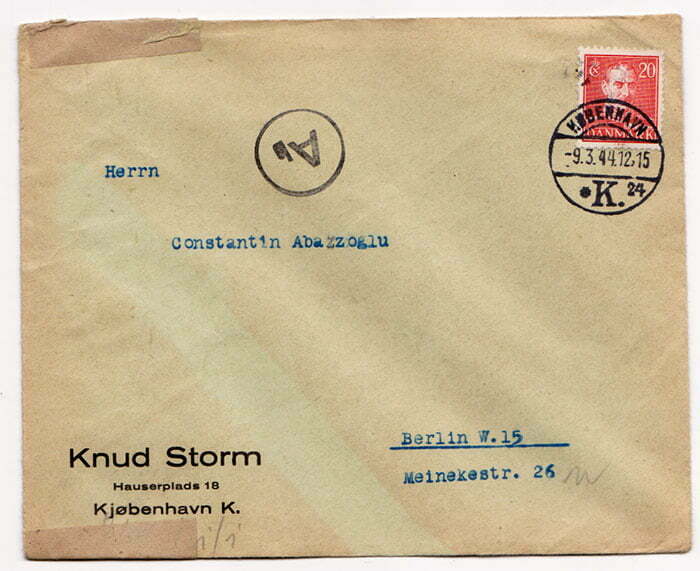 20
DANMARK
KØBENHAVN
-9.3.44.12,15
*K. 24
Herrn
Constantin Abazzoglu
Berlin W.15
Meinekestr. 26
Knud Storm
Hauserplads 18
Kjøbenhavn K.